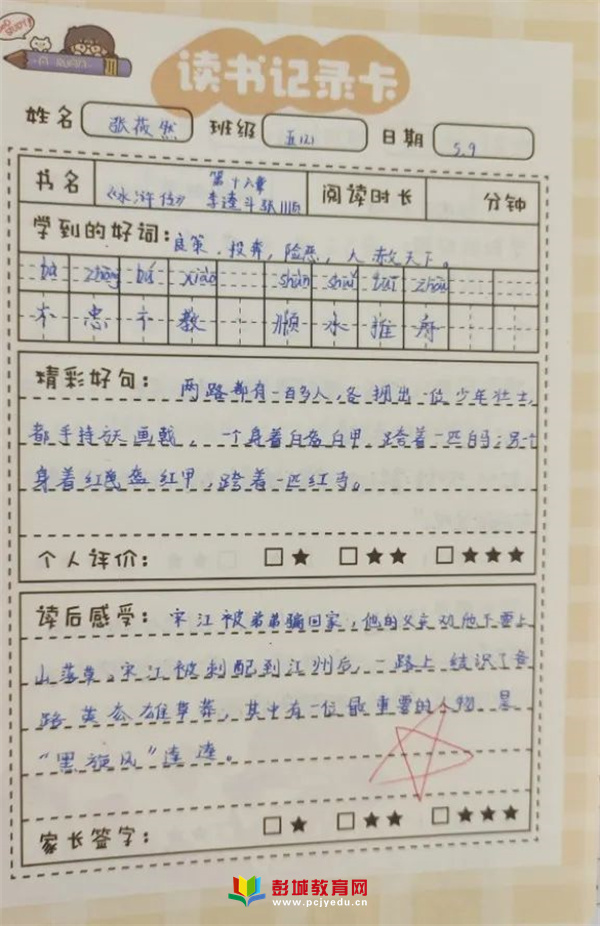 读书记录卡
姓名 张筱然 班级 五(2) 日期 5.9
书名 《水浒传》 第十六章 李逵斗张顺 阅读时长 分钟
学到的好词：良策，投奔，险恶，人赦天下。
bù zhōng bú xiào shùn shuǐ tuī zhōu
不 忠 不 教 顺 水 推 舟
精彩好句： 两路都有一百多人，各拥出一位少年壮士，
都手持方天画戟，一个身着白盔白甲，跨着一匹白马；另一个
身着红盔红甲，跨着一匹红马。
个人评价： □★ □★★ □★★★
读后感受： 宋江被弟弟骗回家，他的父亲劝他不要上
山落草。宋江被刺配到江州后，一路上结识了各
路英雄草莽，其中有一位最重要的人物是
“黑旋风”逵。
家长签字： □★ □★★ □★★★
彭城教育网
www.pcjyedu.cn